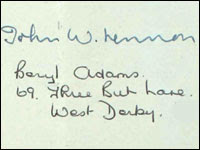 John W. Lennon
Beryl Adams.
69. Three But Lane.
West Derby.